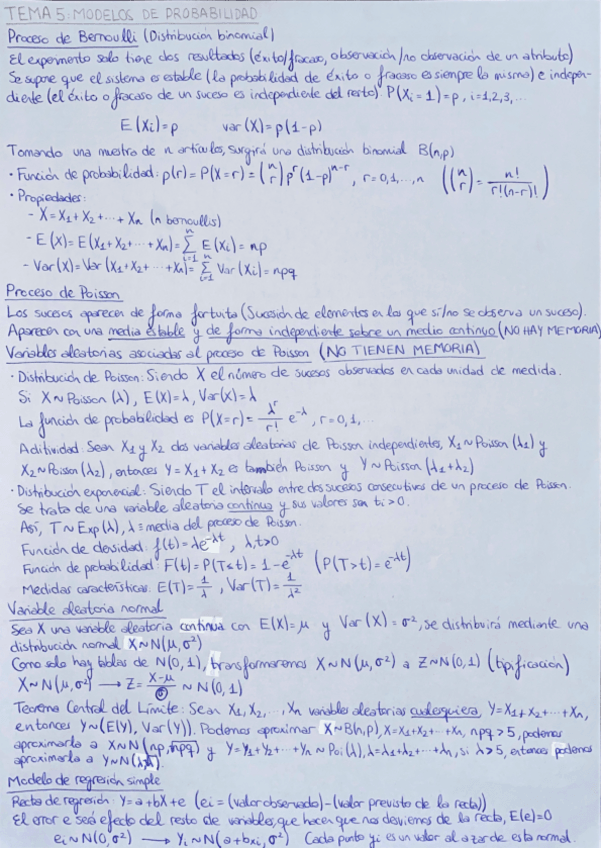 TEMA 5: MODELOS DE PROBABILIDAD
Proceso de Bernoulli (Distribución binomial)
El experimento solo tiene dos resultados (éxito/fracaso, observación/no observación de un atributo)
Se supone que el sistema es estable (la probabilidad de éxito o fracaso es siempre la misma) e indepen-
diente (el éxito o fracaso de un suceso es independiente del resto) P(Xi=1)=p, i=1,2,3,...
E(Xi)=p var(X)=p(1-p)
Tomando una muestra de n artículos, surgirá una distribución binomial B(n,p)
· Función de probabilidad: p(r)=P(X=r)=(n r) p^r (1-p)^(n-r), r=0,1,...,n ((n r)= n!/(r!(n-r)!))
· Propiedades:
- X=X1+X2+...+Xn (n bernoullis)
- E(X)=E(X1+X2+...+Xn)=Σ_{i=1}^{n} E(Xi)=np
- Var(X)=Var(X1+X2+...+Xn)=Σ_{i=1}^{n} Var(Xi)=npq
Proceso de Poisson
Los sucesos aparecen de forma fortuita (Sucesión de elementos en los que si/no se observa un suceso).
Aparecen con una media estable y de forma independiente sobre un medio continuo (NO HAY MEMORIA)
Variables aleatorias asociadas al proceso de Poisson (NO TIENEN MEMORIA)
· Distribución de Poisson: Siendo X el número de sucesos observados en cada unidad de medida.
Si X~Poisson(λ), E(X)=λ, Var(X)=λ
La función de probabilidad es P(X=r)= λ^r/r! e^-λ, r=0,1,...
Aditividad: Sean X1 y X2 dos variables aleatorias de Poisson independientes, X1~Poisson(λ1) y
X2~Poisson(λ2), entonces Y=X1+X2 es también Poisson y Y~Poisson(λ1+λ2)
· Distribución exponencial: Siendo T el intervalo entre dos sucesos consecutivos de un proceso de Poisson.
Se trata de una variable aleatoria continua y sus valores son ti>0.
Así, T~Exp(λ), λ≡media del proceso de Poisson.
Función de densidad: f(t)=λe^-λt, λ,t>0
Función de probabilidad: F(t)=P(T≤t)=1-e^-λt (P(T>t)=e^-λt)
Medidas características: E(T)=1/λ, Var(T)=1/λ²
Variable aleatoria normal
Sea X una variable aleatoria continua con E(X)=μ y Var(X)=σ², se distribuirá mediante una
distribución normal X~N(μ,σ²)
Como solo hay tablas de N(0,1), transformaremos X~N(μ,σ²) a Z~N(0,1) (tipificación)
X~N(μ,σ²) → Z=(X-μ)/σ ~N(0,1)
Teorema Central del Límite: Sean X1,X2,...,Xn variables aleatorias cualesquiera, Y=X1+X2+...+Xn,
entonces Y~(E(Y),Var(Y)). Podemos aproximar X~B(n,p), X=X1+X2+...+Xn, npq>5, podemos
aproximarla a X~N(np,npq) y Y=Y1+Y2+...+Yn~Poi(λ), λ=λ1+λ2+...+λn, si λ>5, entonces podemos
aproximarla a Y~N(λ,
Modelo de regresión simple
Recta de regresión: Y=a+bX+e (ei=(valor observado)-(valor previsto de la recta))
El error e será efecto del resto de variables, que hacen que nos desviemos de la recta, E(e)=0
ei~N(0,σ²) → Yi~N(a+bxi,σ²) Cada punto yi es un valor al azar de esta normal.